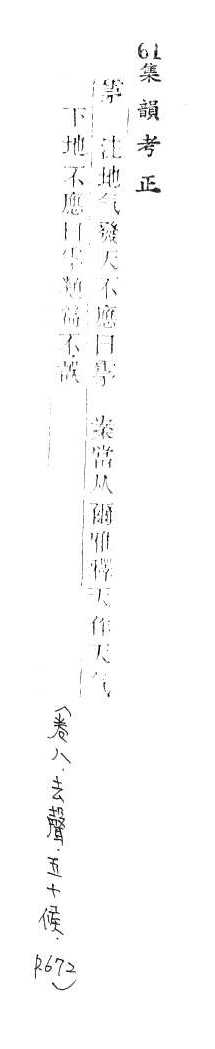 61集韻考正
雺 注地气發天不應曰雺 案當从爾雅釋天作天气
下地不應曰雺類篇不誤
(卷八.去聲.五十候.P.672)